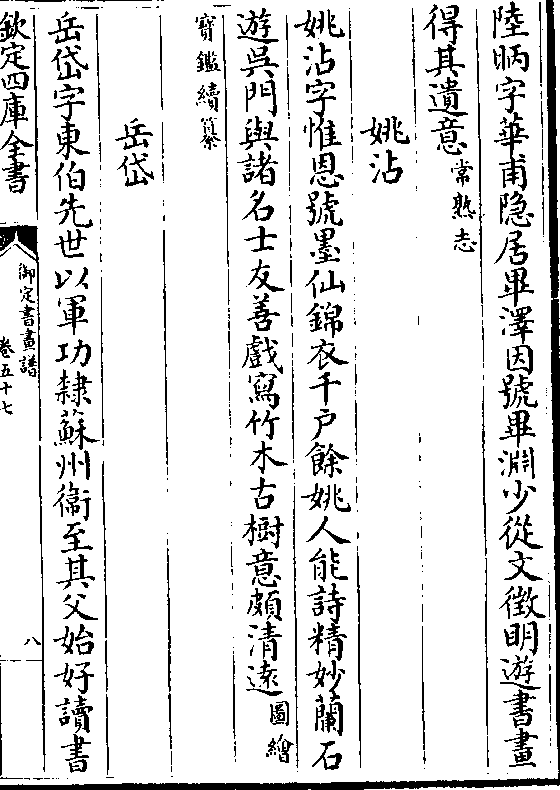 陸昞字華甫隐居畢澤因號畢淵少從文徵明遊書畫
得其遺意常熟志
姚沾
姚沾字惟恩號墨仙錦衣千户餘姚人能詩精妙蘭石
遊吳門與諸名士友善戲寫竹木古樹意頗清逺圖繪
寳鑑續纂
岳岱
岳岱字東伯先世以軍功隸蘇州衞至其父始好讀書
欽定四庫全書
御定書畫譜
卷五十七
八